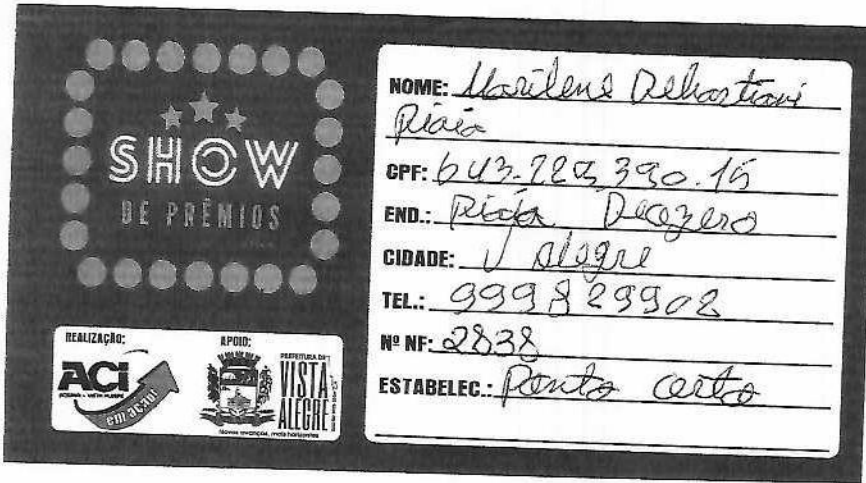 SHOW
DE PRÊMIOS
REALIZAÇÃO:
ACI
em ação!
APOIO:
PREFEITURA DE
VISTA
ALEGRE
Novos avanços, mais horizontes
NOME: Marilene Debastiani
Piaia
CPF: 643.223.390.15
END.:
CIDADE: V Alegre
TEL.: 999829902
Nº NF: 2838
ESTABELEC.: Ponto Certo